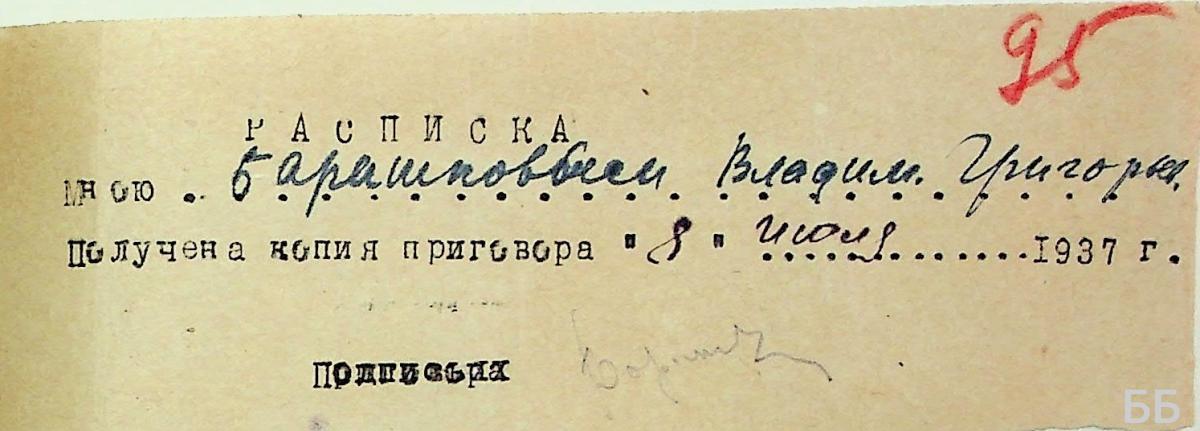 95
РАСПИСКА
Мною Барашковым Владим. Григорьев.
Получена копия приговора "8" июля 1937 г.
Подпись
ББ